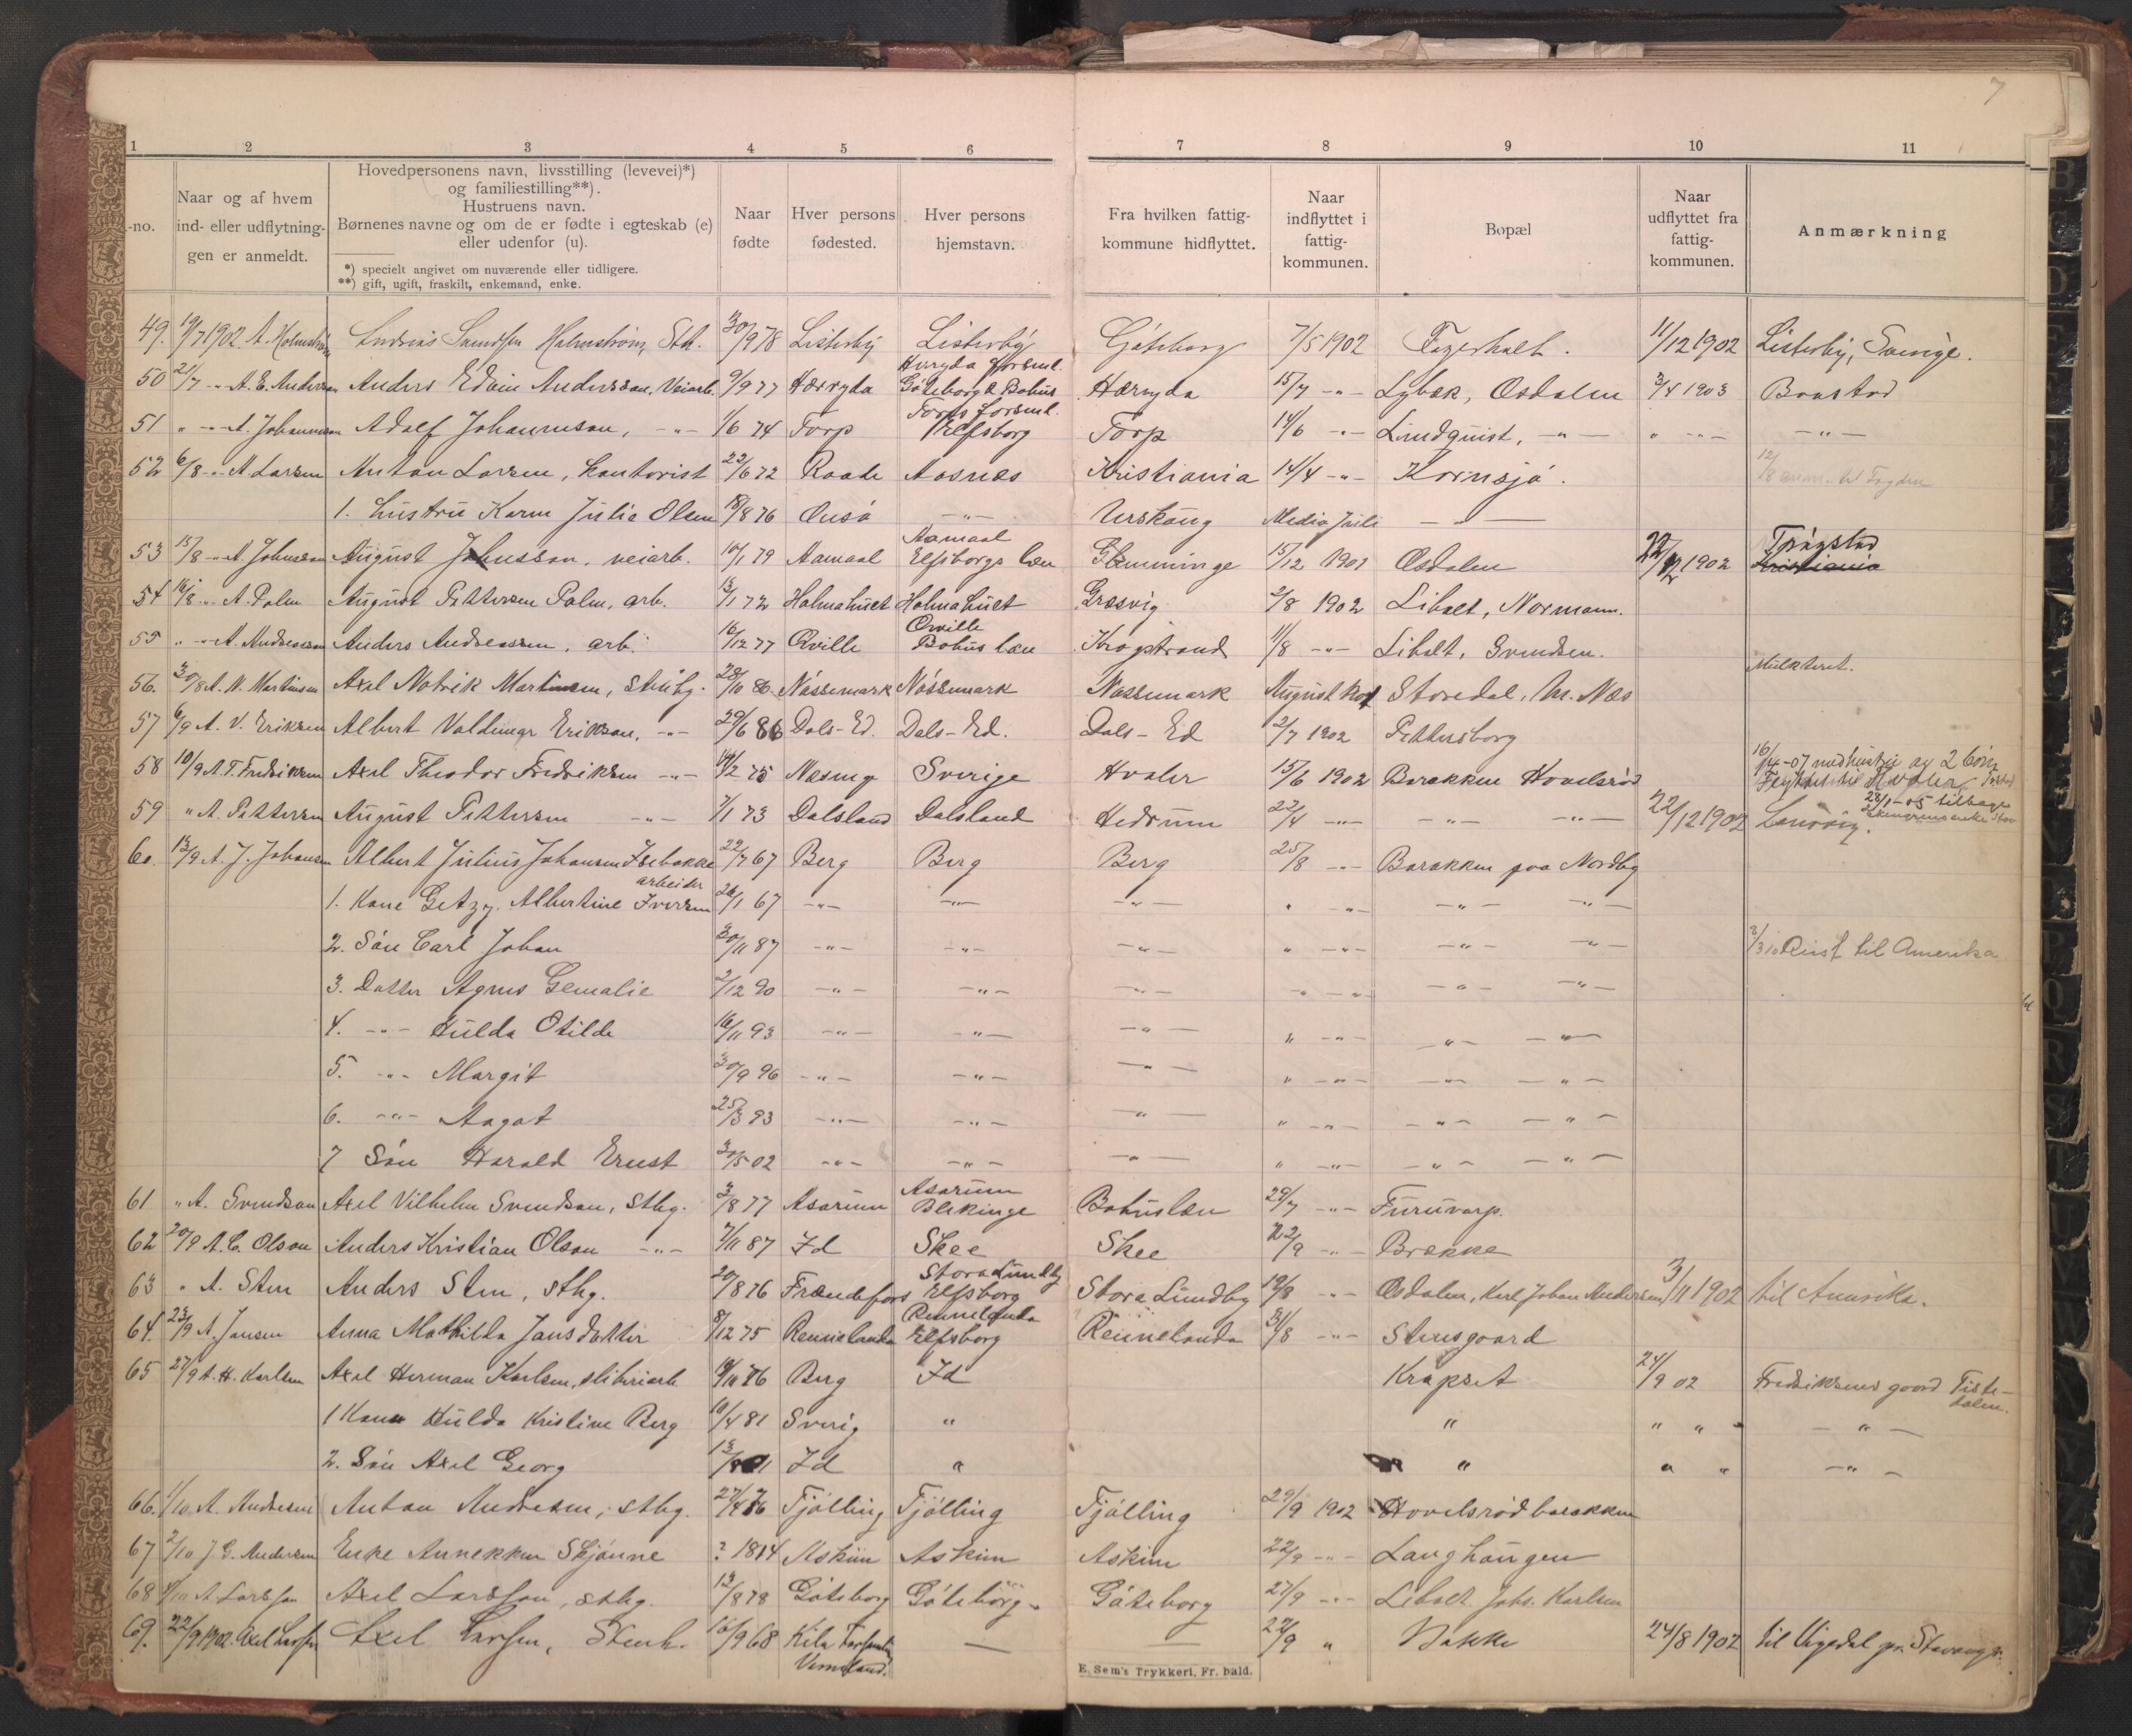 7
1 2 3 4 5 6 7 8 9 10 11
-no.
Naar og af hvem
ind- eller udflytnin-
gen er anmeldt.
Hovedpersonens navn, livsstilling (levevei)*)
og familiestilling**).
Hustruens navn.
Børnenes navne og om de er fødte i egteskab (e)
eller udenfor (u).
*) specielt angivet om nuværende eller tidligere.
**) gift, ugift, fraskilt, enkemand, enke.
Naar
fødte
Hver persons
fødested.
Hver persons
hjemstavn.
Fra hvilken fattig-
kommune hidflyttet.
Naar
indflyttet i
fattig-
kommunen.
Bopæl
Naar
udflyttet fra
fattig-
kommunen.
Anmærkning
49. 19/7 1902 A. Holmström Holmström, Sth. 30/9 78 Listerby Listerby Göteborg 7/5 1902 Fagerholt. 11/12 1902 Listerby, Sverige.
Herryda Forsml.
50 21/7 -"- A. E. Anderson Anders Edvin Andersson, Veiarb. 9/9 77 Herryda Göteborg & Bohus Herryda 15/7 -"- Lybæk, Ødalen 3/4 1903 Baastad
Torps Forsml.
51 " -"- A. Johannesson Adolf Johannesson, -"- 1/6 74 Torp Elfsborg Torp 14/6 -"- Lindquist, -"- " -"- -"-
52 6/8 -"- A Larsen Anton Larsen, kontorist 22/6 72 Raade Aasnæs Kristiania 14/4 -"- Kornsjø. 12/8
1. Hustru Karen Julie Olsen 18/8 76 Onsø -"- Urskoug Medio Juli -"-
Aamaal
53 15/8 -"- A Johnsson August Johnsson, veiarb. 10/1 79 Aamaal Elfsborgs læn Glemminge 15/12 1901 Øsdalen 22/12 1902 Trøgstad
Kristiania
54 16/8 -"- A. Palm August Pettersen Palm, arb. 13/1 72 Holmahult Holmahult Græsvig 2/8 1902 Liholt, Normann.
Qville
55 " -"- A. Andreassen Anders Andreassen, arb. 16/12 77 Qville Bohus læn Krogstrand 11/8 -"- Liholt, Svendsen.
Mulkteret.
56. 30/8 A. N. Martinsen Axel Natrik Martinsen, sthug. 28/10 86 Nössemark Nössemark Nössemark August Storedal, M. Næs
57 6/9 A. V. Eriksen Albert Valdemar Erikson, -"- 29/6 86 Dals-Ed. Dals-Ed. Dals-Ed 2/7 1902 Pettersborg
58 10/9 A. T. Fredriksen Axel Theodor Fredriksen -"- 14/2 75 Næsinge Sverige Hvaler 15/6 1902 Barakken Hovelsrød 16/4-07 med hustru og 2 börn
Flyttet til Hvaler
59 " A. Pettersen August Pettersen -"- 7/1 73 Dalsland Dalsland Hedrum 22/4 -"- -"- -"- 22/12 1902 Larvig. 28/1-05 tilbage
60. 13/9 A. J. Johansen Albert Julius Johansen Isebakke 22/7 67 Berg Berg Berg 25/8 -"- Barakken paa Nordby
arbeider
1. Kone Getzy Albertine Iversen 26/1 67 -"- -"- -"- " -"- -"- -"-
2. Søn Carl Johan 30/11 87 -"- -"- -"- " -"- -"- -"- 3/3 10 Reist til Amerika
3. Datter Agnes Gemalie 2/12 90 -"- -"- -"- " -"- -"- -"-
4. -"- Hulda Otilde 16/11 93 -"- -"- -"- " -"- -"- -"-
5. -"- Margit 30/9 96 -"- -"- -"- " -"- -"- -"-
6. -"- Aagot 25/3 93 -"- -"- -"- " -"- -"- -"-
7 Søn Harald Ernst 30/5 02 -"- -"- -"- " -"- -"- -"-
Asarum
61 " A. Svendson Axel Vilhelm Svendson, sthg. 3/8 77 Asarum Blekinge Bohuslæn 29/7 -"- Furuvarp.
62 20/9 A. C. Olson Anders Kristian Olson -"- 7/11 87 Id Skee Skee 22/9 -"- Brække
Stora Lundby
63 " A. Sten Anders Sten, sthg. 20/8 76 Frændefors Elfsborg Stora Lundby 19/8 -"- Øsdalen, Karl Johan Andersen 3/11 1902 til Amerika.
Rennelanda
64. 23/9 A. Jansen Anna Mathilda Jansdatter 8/12 75 Rennelanda Elfsborg Rennelanda 31/8 -"- Stensgaard
65 27/9 A. H. Karlsen Axel Herman Karlsen, sliberiarb 19/11 76 Berg Id Krapset 24/9 02 Fredriksens gaard Tiste-
dalen.
1 Kone Hulda Kristine Berg 10/4 81 Sverig " " " " -"-
2. Søn Axel Georg Id " " " " -"-
66. 1/10 A. Andresen Anton Andresen, sthg. 27/4 76 Tjølling Tjølling Tjølling 29/9 1902 Hovelsrød barakken
67 2/10 J. G. Andersen Enke Annekken Skjønne ? 1814 Askim Askim Askim 22/9 -"- Langhaugen
68 A Larsson Axel Larsson, sthg. 13/8 78 Göteborg Göteborg Göteborg 27/9 -"- Liholt Johs. Karlsen
69. 22/9 1902 Axel Larsen Axel Larsen, Stenh. 16/9 68 Kila Forsamling — — 22/9 " Bakke 24/8 1902 til Vigedal pr. Stavanger.
Vermland.
E. Sem's Trykkeri, Fr. hald.